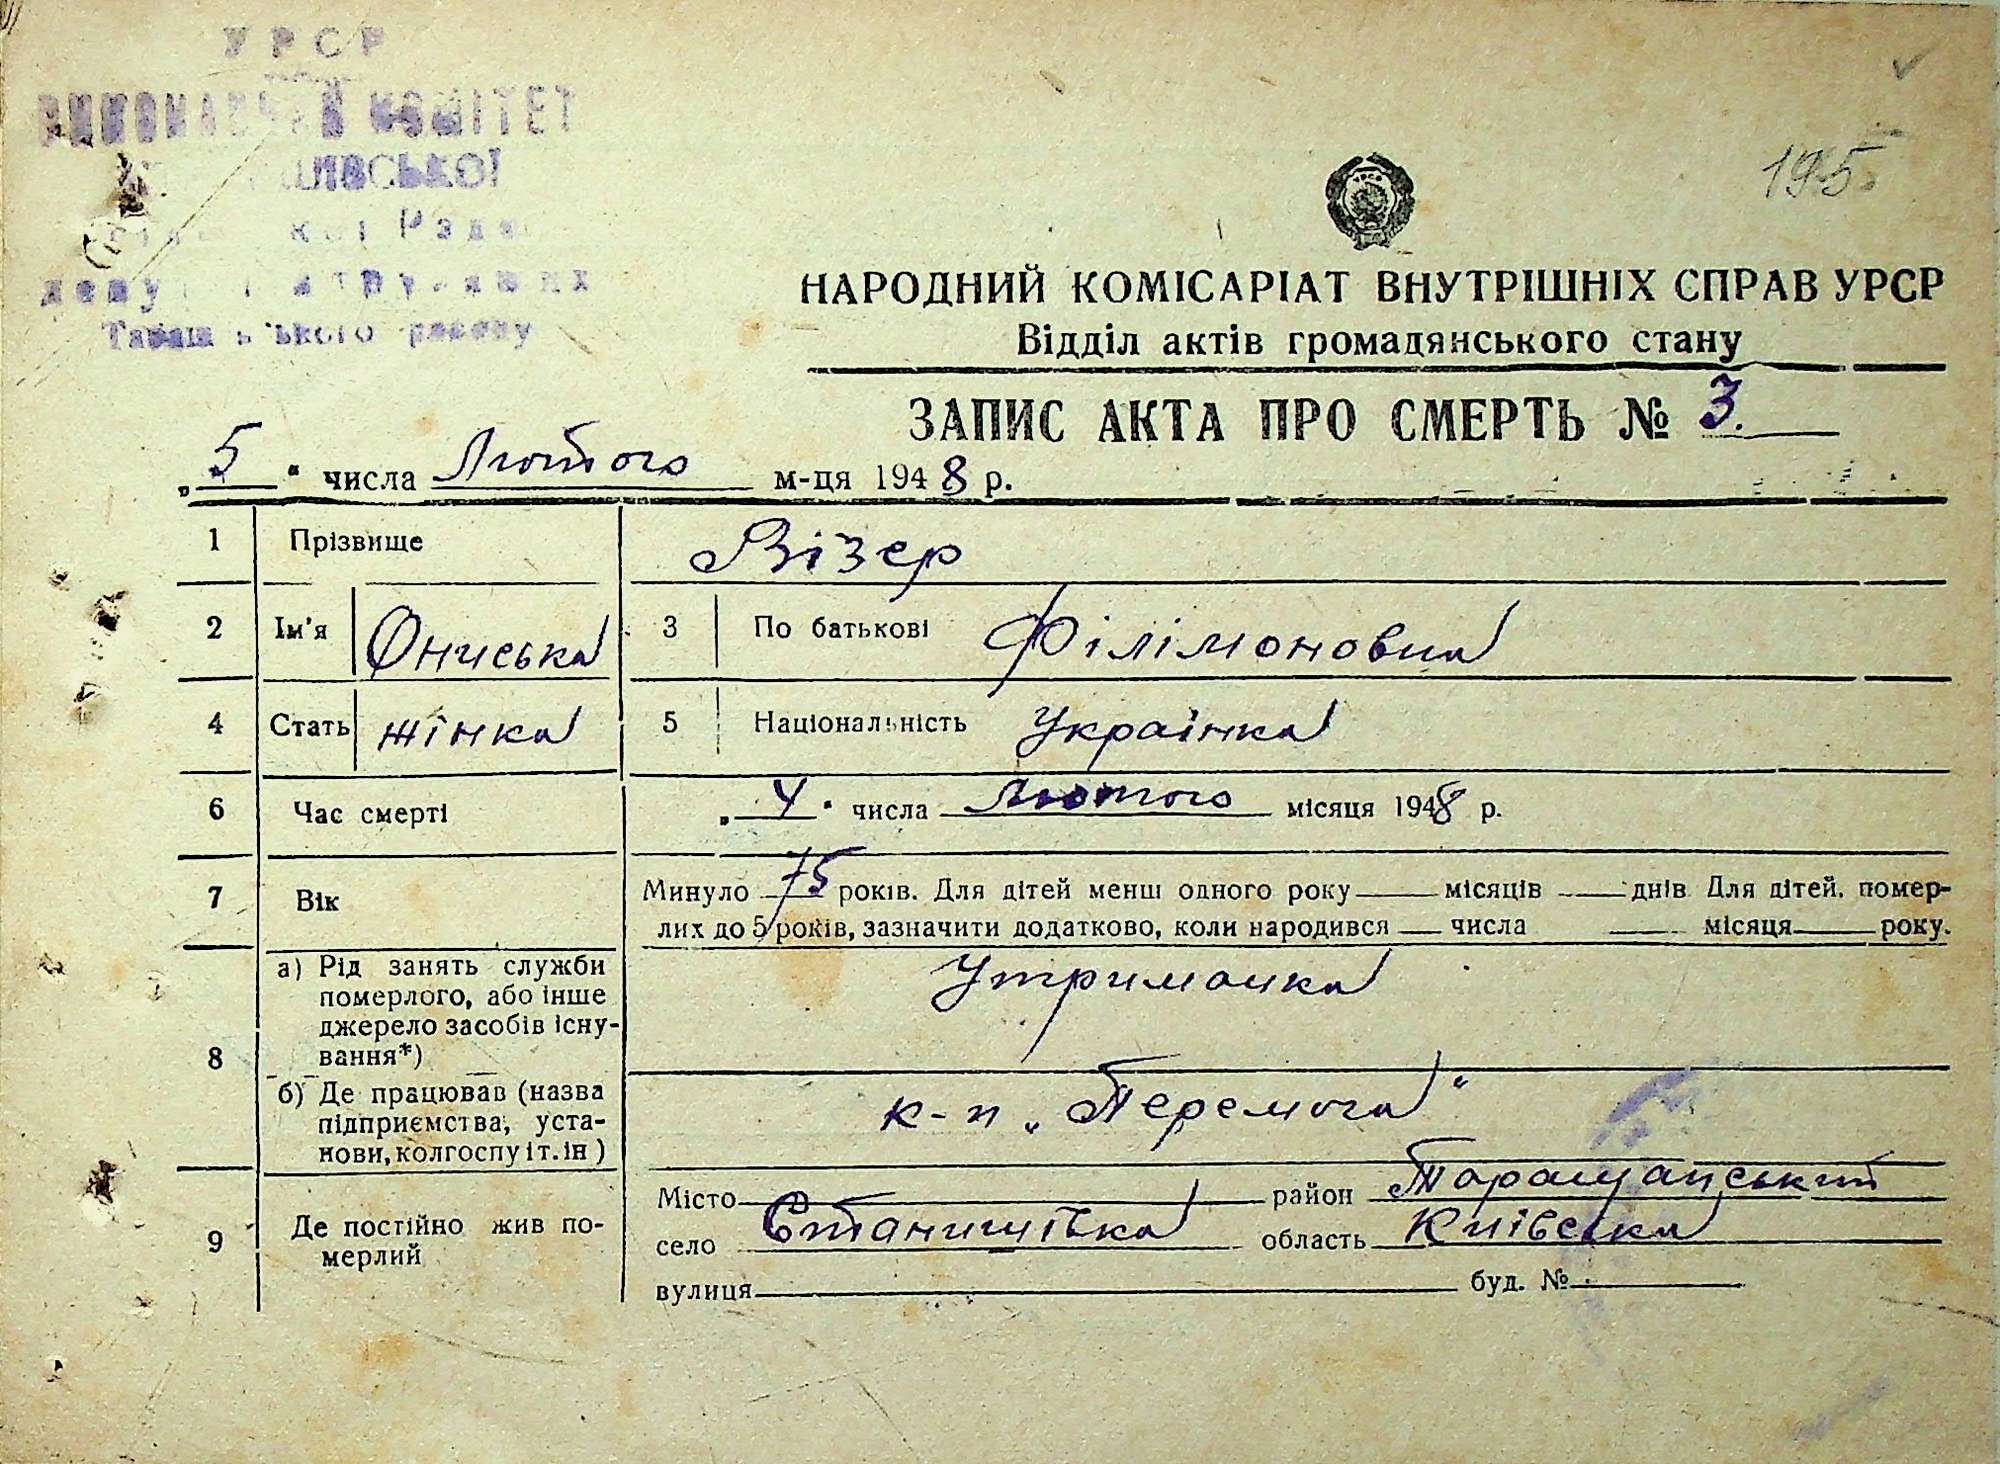 УРСР
ВИКОНАВЧИЙ КОМІТЕТ
Ради
району
195
УРСР
НАРОДНИЙ КОМІСАРІАТ ВНУТРІШНІХ СПРАВ УРСР
Відділ актів громадянського стану
ЗАПИС АКТА ПРО СМЕРТЬ № 3.
„5“ числа Лютого м-ця 1948 р.
1 Прізвище Візер
2 Ім'я Ониська 3 По батькові Філімоновна
4 Стать жінка 5 Національність Українка
6 Час смерті „4“ числа Лютого місяця 1948 р.
7 Вік Минуло 75 років. Для дітей менш одного року місяців днів Для дітей, помер-
лих до 5 років, зазначити додатково, коли народився числа місяця року.
8 а) Рід занять служби
померлого, або інше
джерело засобів існу-
вання*)
Утриманка
б) Де працював (назва
підприємства, уста-
нови, колгоспу і т. ін)
к-п „Перемога“
9 Де постійно жив по-
мерлий
Місто район Таращанський
село Станишівка область Київська
вулиця буд. №